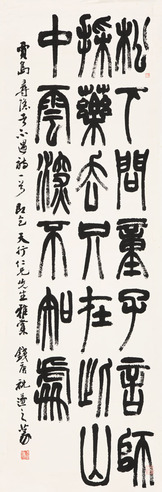 松下問童子言師
採藥去只在此山
中雲深不知處
賈島尋隱者不遇詩一首即乞天行仁兄先生雅賞錢唐